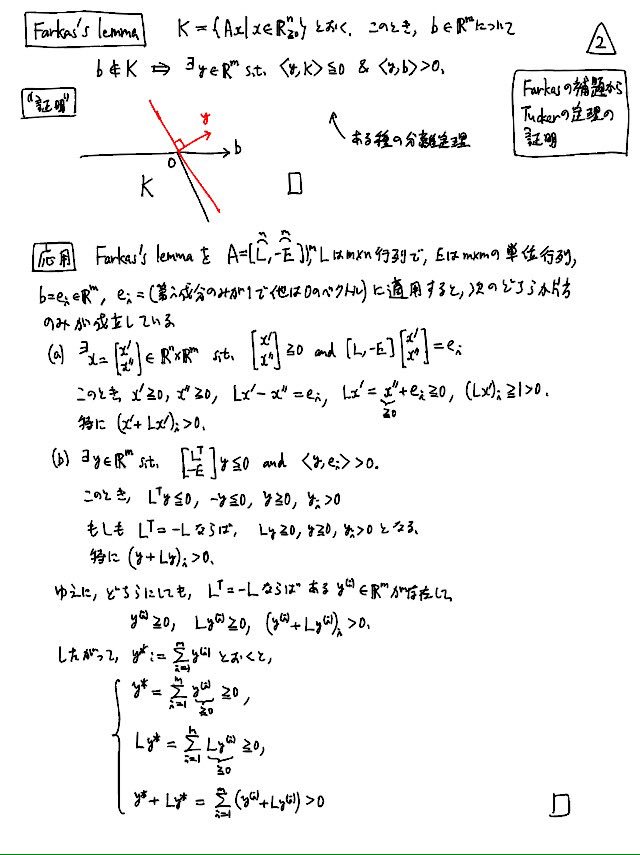 Farkas's lemma K = {Ax | x ∈ ℝⁿ≧₀} とおく. このとき, b ∈ ℝᵐ について
2
b ∉ K ⇔ ∃y ∈ ℝᵐ s.t. ⟨y, K⟩ ≦ 0 & ⟨y, b⟩ > 0.
Farkasの補題から
Tuckerの定理の
証明
"証明"
y
0
b
K
□
ある種の分離定理
応用 Farkas's lemma を A = [L, -E]}m, Lはm×n行列で, Eはm×mの単位行列,
b = eᵢ ∈ ℝᵐ, eᵢ = (第i成分のみが1で他は0のベクトル) に適用すると, 次のどちらか片方
のみが成立している
(a) ∃x = [x' x''] ∈ ℝⁿ×ℝᵐ s.t. [x' x''] ≧ 0 and [L, -E] [x' x''] = eᵢ
このとき, x' ≧ 0, x'' ≧ 0, Lx' - x'' = eᵢ, Lx' = x'' + eᵢ ≧ 0, (Lx')ᵢ ≧ 1 > 0.
≧0
特に (x' + Lx')ᵢ > 0.
(b) ∃y ∈ ℝᵐ s.t. [Lᵀ -E] y ≦ 0 and ⟨y, eᵢ⟩ > 0.
このとき, Lᵀy ≦ 0, -y ≦ 0, y ≧ 0, yᵢ > 0
もしも Lᵀ = -L ならば, Ly ≧ 0, y ≧ 0, yᵢ > 0 となる.
特に (y + Ly)ᵢ > 0.
ゆえに, どちらにしても, Lᵀ = -L ならば ある y⁽ⁱ⁾ ∈ ℝᵐ が存在して,
y⁽ⁱ⁾ ≧ 0, Ly⁽ⁱ⁾ ≧ 0, (y⁽ⁱ⁾ + Ly⁽ⁱ⁾)ᵢ > 0.
したがって, y* := Σᵢ₌₁ᵐ y⁽ⁱ⁾ とおくと,
y* = Σᵢ₌₁ᵐ y⁽ⁱ⁾ ≧ 0,
≧0
Ly* = Σᵢ₌₁ᵐ Ly⁽ⁱ⁾ ≧ 0,
≧0
y* + Ly* = Σᵢ₌₁ᵐ (y⁽ⁱ⁾ + Ly⁽ⁱ⁾) > 0
□